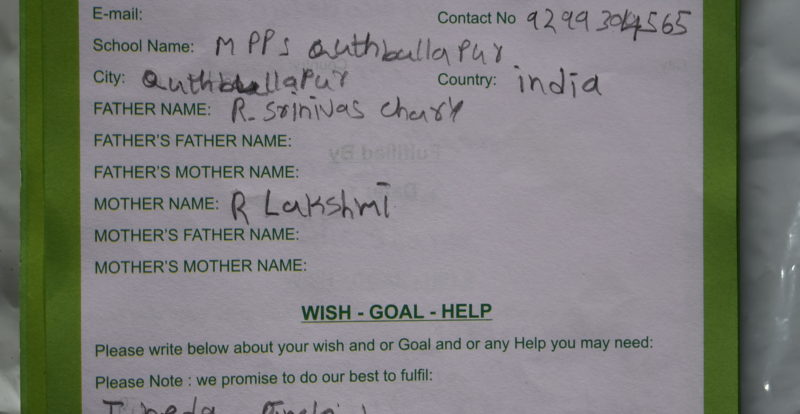 E-mail:
Contact No 9299304565
School Name: MPPS Quthbullapur
City: Quthbullapur Country: india
FATHER NAME: R. Srinivas chary
FATHER'S FATHER NAME:
FATHER'S MOTHER NAME:
MOTHER NAME: R Lakshmi
MOTHER'S FATHER NAME:
MOTHER'S MOTHER NAME:
WISH - GOAL - HELP
Please write below about your wish and or Goal and or any Help you may need:
Please Note : we promise to do our best to fulfil: